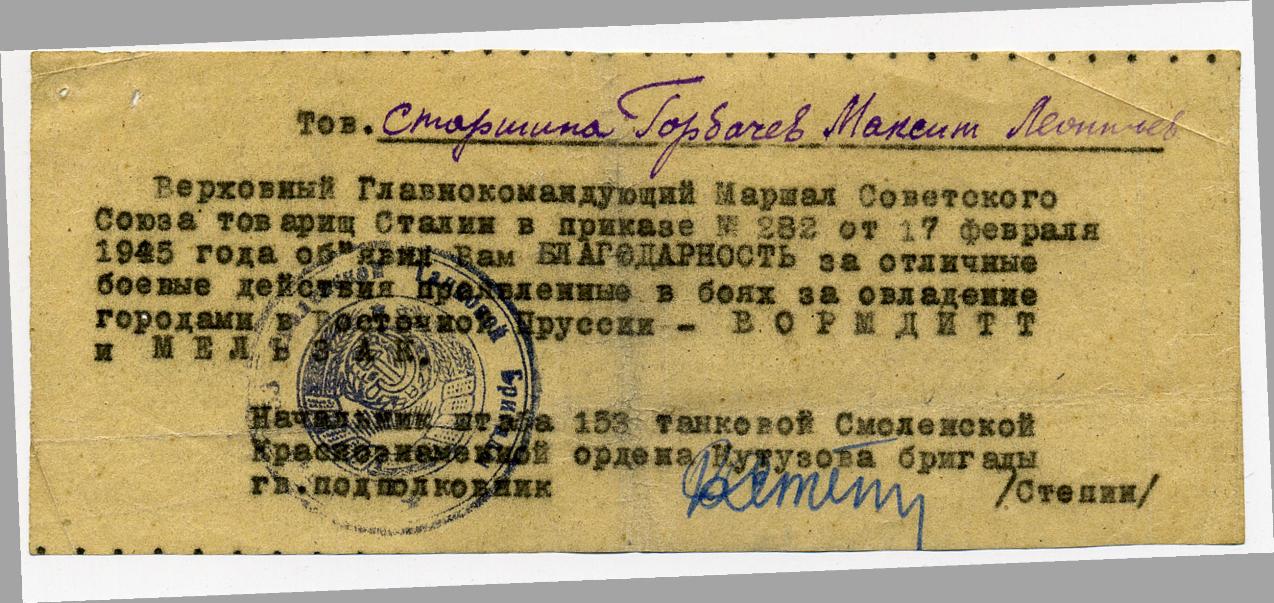 Тов. Старшина Горбачев Максим Леонтьев
Верховный Главнокомандующий Маршал Советского
Союза товарищ Сталин в приказе № 282 от 17 февраля
1945 года об"явил Вам БЛАГОДАРНОСТЬ за отличные
боевые действия проявленные в боях за овладение
городами в Восточной Пруссии - В О Р М Д И Т Т
и М Е Л Ь З А К.
Начальник штаба 153 танковой Смоленской
Краснознаменной ордена Кутузова бригады
гв.подполковник /Степин/
танковой бригады